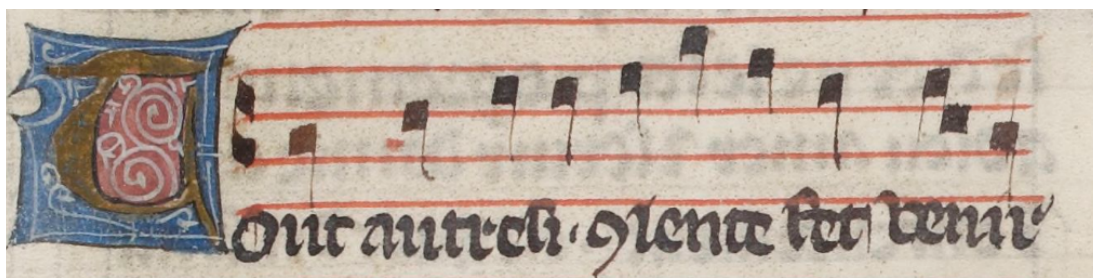 Tout autresi· ꝯ lente fet venir